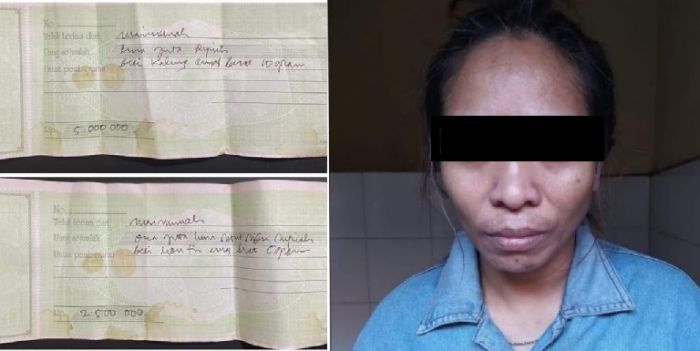 No.
Telah terima dari Maimunah
Uang sejumlah Lima Juta Rupiah
Buat pembayaran beli Kalung emas berat 10 gram
Rp. 5.000 000
No.
Telah terima dari Maimunah
Uang sejumlah Dua Juta Lima Ratus Ribu Rupiah
Buat pembayaran beli emas berat 5 gram
2 500 000